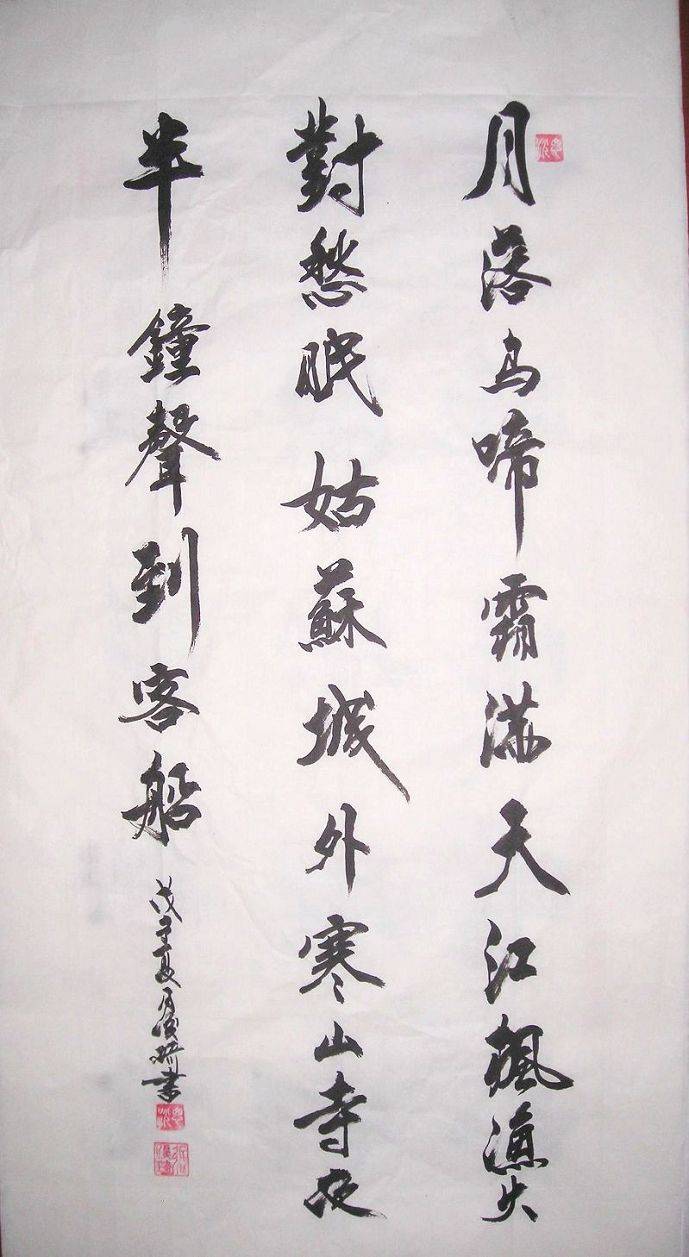 月落乌啼霜满天江楓漁火
對愁眠姑蘇城外寒山寺夜
半鐘聲到客船
戊子夏月 書